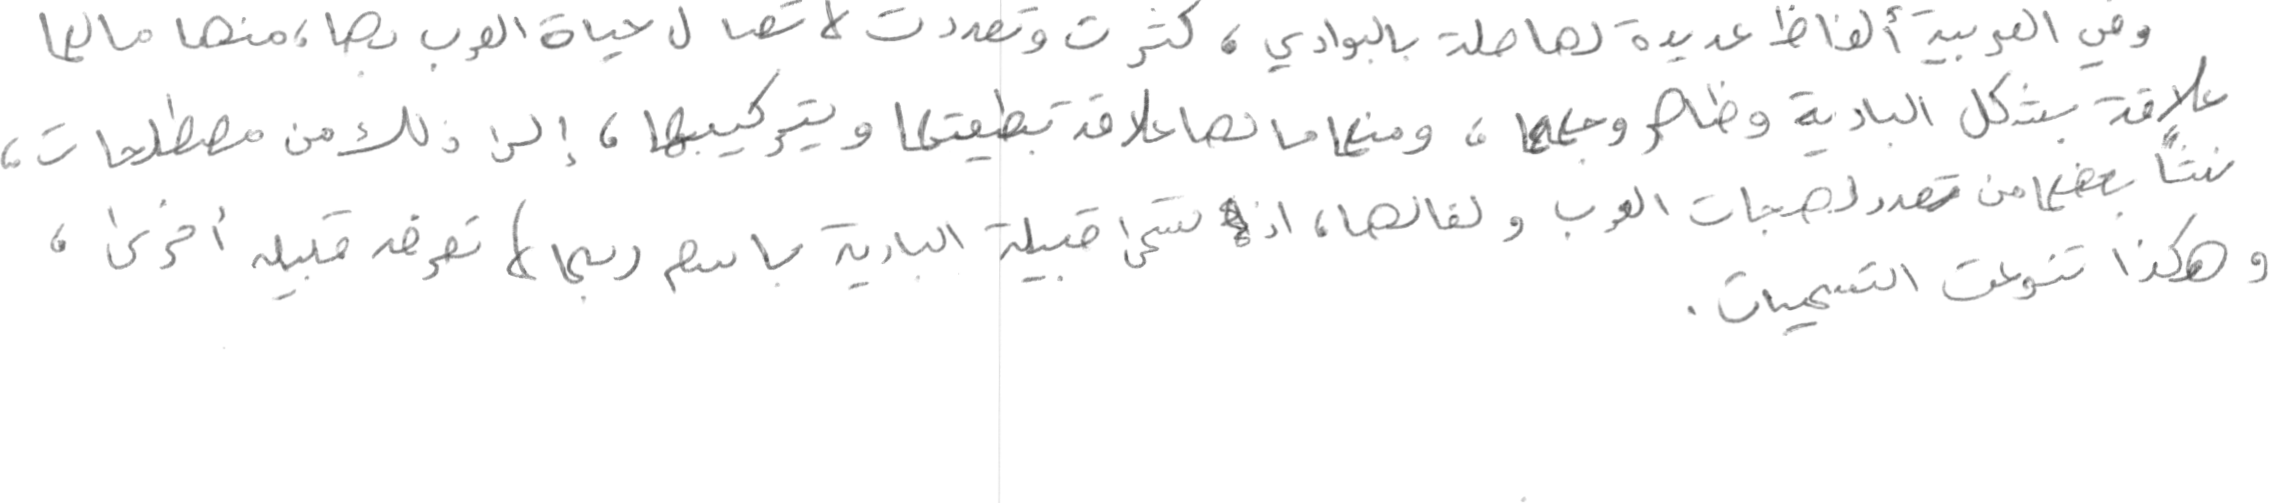 وفي العربية ألفاظ عديدة لها صلة بالبوادي، كثرت وتعددت لاتصال حياة العرب بها، منها مالها
علاقة بشكل البادية وظاهر وجهها، ومنها ما لها علاقة بطبيعتها وبتركيبها، إلى ذلك من مصطلحات،
نشأ بعضها من تعدد لهجات العرب ولغاتها، اذ تسمى قبيلة البادية باسم ربما لا تعرفه قبيله أخرى،
وهكذا تنوعت التسميات.